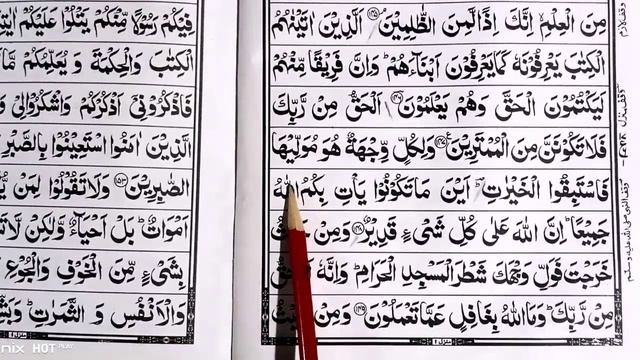 مِنَ الْعِلْمِ ۙ اِنَّكَ اِذًا لَّمِنَ الظّٰلِمِیْنَ ﴿۱۴۵﴾ اَلَّذِیْنَ اٰتَیْنٰهُمُ
الْكِتٰبَ یَعْرِفُوْنَهٗ كَمَا یَعْرِفُوْنَ اَبْنَآءَهُمْ ؕ وَ اِنَّ فَرِیْقًا مِّنْهُمْ
لَیَكْتُمُوْنَ الْحَقَّ وَ هُمْ یَعْلَمُوْنَ ﴿۱۴۶﴾ اَلْحَقُّ مِنْ رَّبِّكَ
فَلَا تَكُوْنَنَّ مِنَ الْمُمْتَرِیْنَ ﴿۱۴۷﴾ وَ لِكُلٍّ وِّجْهَةٌ هُوَ مُوَلِّیْهَا
فَاسْتَبِقُوا الْخَیْرٰتِ ؕ اَیْنَ مَا تَكُوْنُوْا یَاْتِ بِكُمُ اللّٰهُ
جَمِیْعًا ؕ اِنَّ اللّٰهَ عَلٰی كُلِّ شَیْءٍ قَدِیْرٌ ﴿۱۴۸﴾ وَ مِنْ
خَرَجْتَ فَوَلِّ وَجْهَكَ شَطْرَ الْمَسْجِدِ الْحَرَامِ ؕ وَ اِنَّهٗ
مِنْ رَّبِّكَ ؕ وَ مَا اللّٰهُ بِغَافِلٍ عَمَّا تَعْمَلُوْنَ ﴿۱۴۹﴾ وَ مِنْ
فِیْكُمْ رَسُوْلًا مِّنْكُمْ یَتْلُوْا عَلَیْكُمْ
الْكِتٰبَ وَ الْحِكْمَةَ وَ یُعَلِّمُكُمْ
فَاذْكُرُوْنِیْۤ اَذْكُرْكُمْ وَ اشْكُرُوْا لِیْ
الَّذِیْنَ اٰمَنُوا اسْتَعِیْنُوْا بِالصَّبْرِ
الصّٰبِرِیْنَ ﴿۱۵۳﴾ وَ لَا تَقُوْلُوْا لِمَنْ
اَمْوَاتٌ ؕ بَلْ اَحْیَآءٌ وَّ لٰكِنْ
بِشَیْءٍ مِّنَ الْخَوْفِ وَ الْجُوْعِ
وَ الْاَنْفُسِ وَ الثَّمَرٰتِ ؕ
HOT